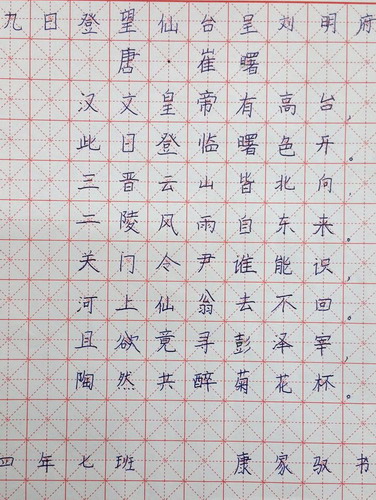 九日登望仙台呈刘明府
唐·崔曙
汉文皇帝有高台，
此日登临曙色开。
三晋云山皆北向，
二陵风雨自东来。
关门令尹谁能识，
河上仙翁去不回。
且欲竟寻彭泽宰，
陶然共醉菊花杯。
四年七班 康家驭书